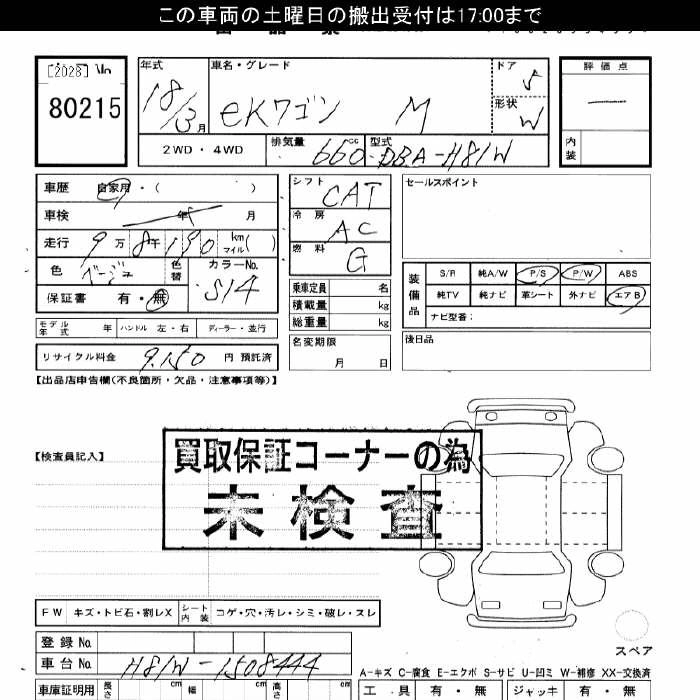 この車両の土曜日の搬出受付は17:00まで
[2028] No
80215
年式 18/3月
車名・グレード eKワゴン M
ドア 5
形状 W
評価点 —
内装
2WD・4WD
排気量 660cc
型式 DBA-H81W
車歴 自家用・( )
車検 年 月
走行 9万8千190 km マイル( )
色 ベージュ 色替 カラーNo. S14
保証書 有・無
モデル年式 年 ハンドル 左・右 ディーラー・並行
リサイクル料金 9,150 円 預託済
シフト CAT
冷房 AC
燃料 G
乗車定員 名
積載量 kg
総重量 kg
名変期限 月 日
セールスポイント
装備品
S/R 純A/W P/S P/W ABS
純TV 純ナビ 革シート 外ナビ エアB
ナビ型番:
後日品
【出品店申告欄(不良箇所・欠品・注意事項等)】
【検査員記入】
買取保証コーナーの為
未検査
FW キズ・トビ石・割レX シート内装 コゲ・穴・汚レ・シミ・破レ・スレ
登録No
車台No H81W-1508444
車庫証明用 長さ cm 幅 cm 高さ cm
スペア
A-キズ C-腐食 E-エクボ S-サビ U-凹ミ W-補修 XX-交換済
工具 有・無 ジャッキ 有・無